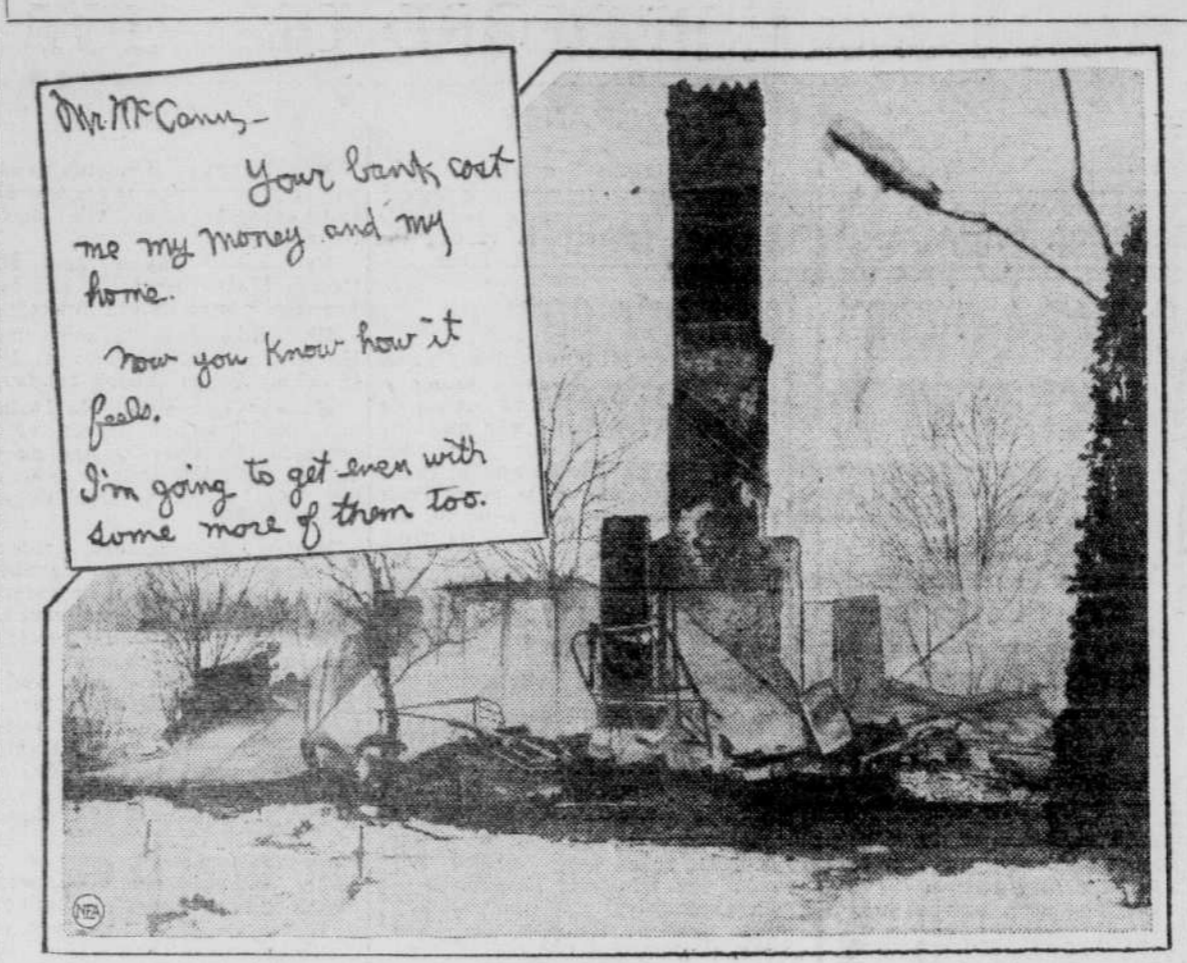 Mr. McCann,-
Your bank cost
me my money and my
home.
Now you know how it
feels.
I'm going to get even with
some more of them too.
NEA